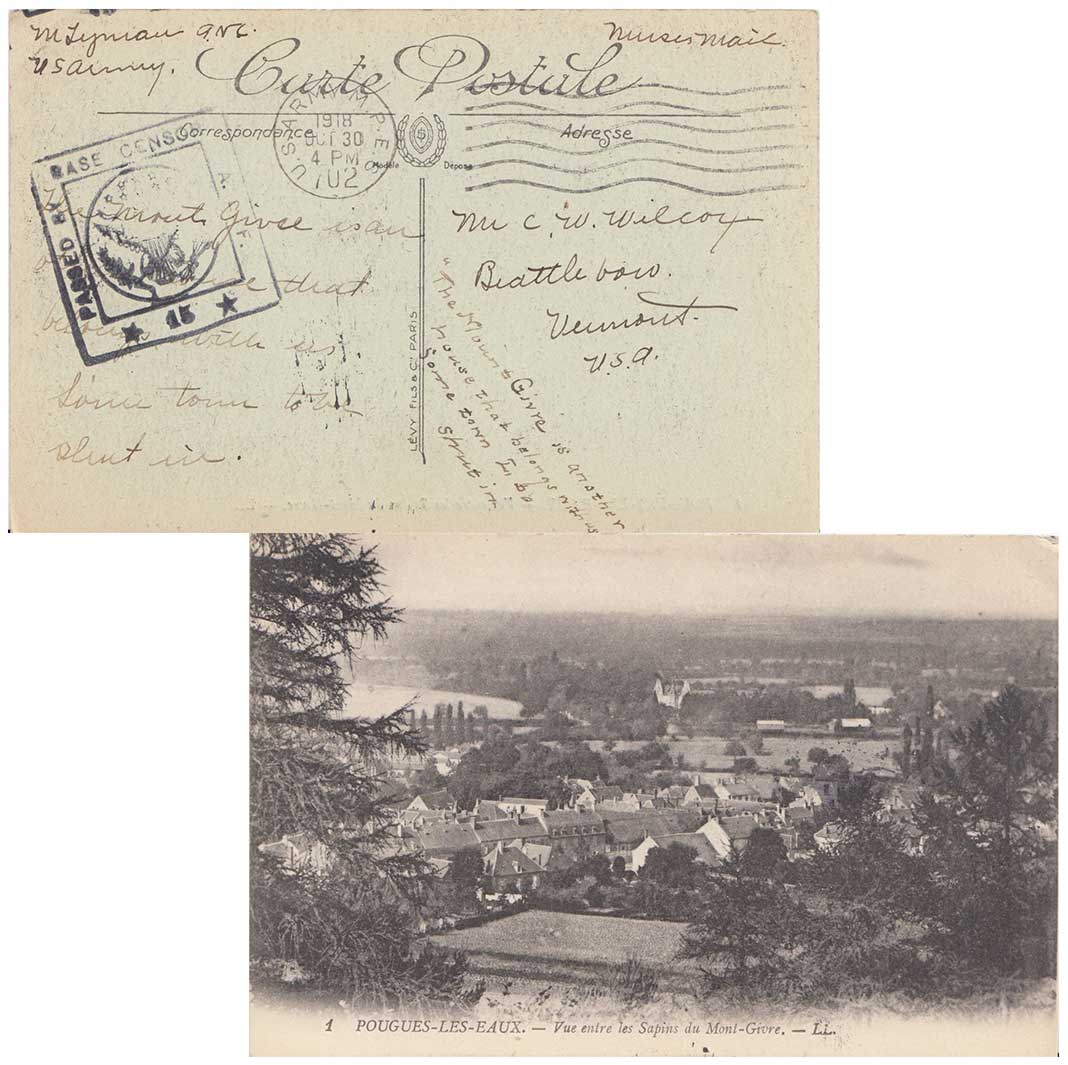 M Lyman A.N.C.
U S Army.
Nurses Mail.
Carte Postale
Correspondance
Adresse
Modèle Déposé
U.S. ARMY M.P.E.
1918
OCT 30
4 PM
702
PASSED BY BASE CENSOR
★ 15 ★
The Mont Givre is an
that
with us
Some town to be
shut in.
Mr C. W. Wilcox
Brattleboro.
Vermont.
U.S.A.
"The Mount Givre is another
house that belongs with us
Some town to be
shut in
LÉVY FILS & Cⁱᵉ PARIS
1 POUGUES-LES-EAUX. — Vue entre les Sapins du Mont-Givre. — LL.